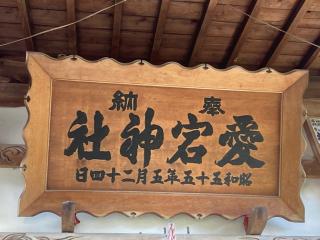 奉納
愛宕神社
昭和五十五年五月二十四日